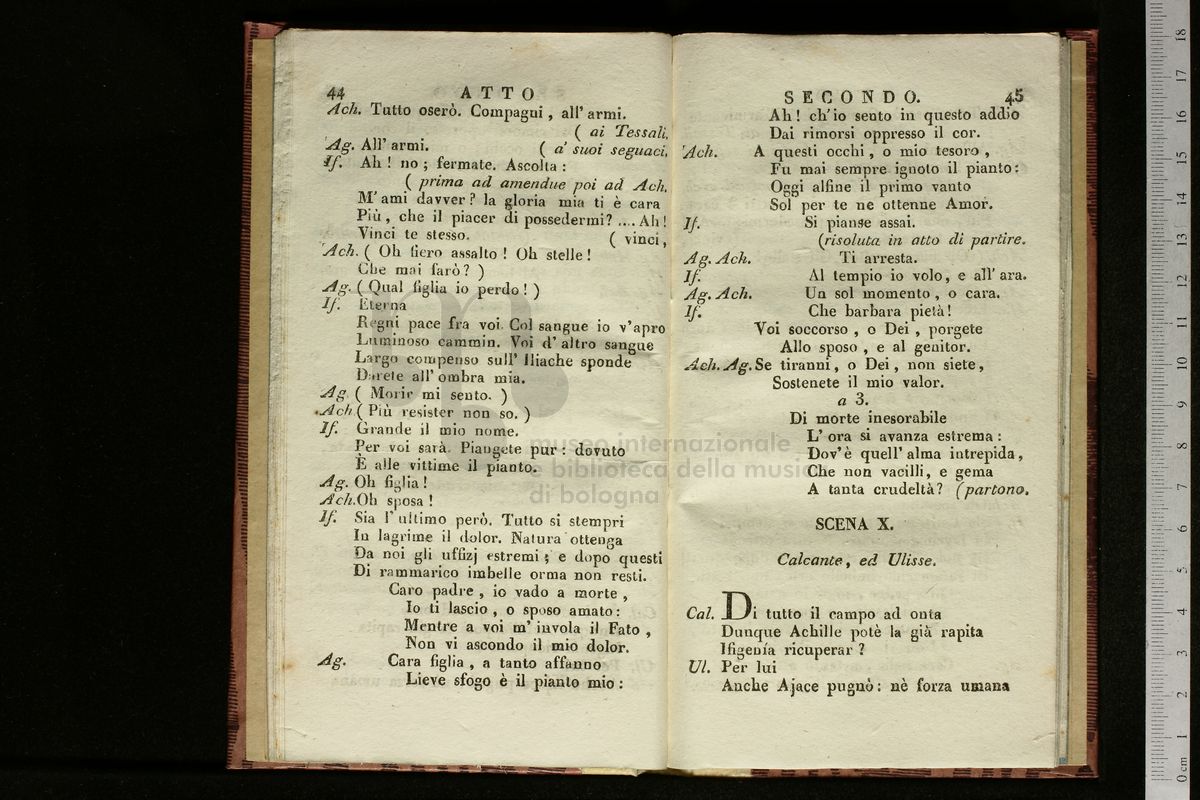 44 ATTO
Ach. Tutto oserò. Compagni, all' armi.
( ai Tessali.
Ag. All' armi. ( a' suoi seguaci.
If. Ah! no; fermate. Ascolta:
( prima ad amendue poi ad Ach.
M'ami davver? la gloria mia ti è cara
Più, che il piacer di possedermi? .... Ah!
Vinci te stesso. ( vinci,
Ach. ( Oh fiero assalto! Oh stelle!
Che mai farò? )
Ag. ( Qual figlia io perdo! )
If. Eterna
Regni pace fra voi. Col sangue io v'apro
Luminoso cammin. Voi d'altro sangue
Largo compenso sull' Iliache sponde
Darete all' ombra mia.
Ag. ( Morir mi sento. )
Ach. ( Più resister non so. )
If. Grande il mio nome.
Per voi sarà. Piangete pur: dovuto
È alle vittime il pianto.
Ag. Oh figlia!
Ach. Oh sposa!
If. Sia l'ultimo però. Tutto si stempri
In lagrime il dolor. Natura ottenga
Da noi gli uffizj estremi; e dopo questi
Di rammarico imbelle orma non resti.
Caro padre, io vado a morte,
Io ti lascio, o sposo amato:
Mentre a voi m'invola il Fato,
Non vi ascondo il mio dolor.
Ag. Cara figlia, a tanto affanno
Lieve sfogo è il pianto mio:
SECONDO. 45
Ah! ch'io sento in questo addio
Dai rimorsi oppresso il cor.
Ach. A questi occhi, o mio tesoro,
Fu mai sempre ignoto il pianto:
Oggi alfine il primo vanto
Sol per te ne ottenne Amor.
If. Si pianse assai.
(risoluta in atto di partire.
Ag. Ach. Ti arresta.
If. Al tempio io volo, e all' ara.
Ag. Ach. Un sol momento, o cara.
If. Che barbara pietà!
Voi soccorso, o Dei, porgete
Allo sposo, e al genitor.
Ach. Ag. Se tiranni, o Dei, non siete,
Sostenete il mio valor.
a 3.
Di morte inesorabile
L'ora si avanza estrema:
Dov'è quell' alma intrepida,
Che non vacilli, e gema
A tanta crudeltà? (partono.
SCENA X.
Calcante, ed Ulisse.
Cal. Di tutto il campo ad onta
Dunque Achille potè la già rapita
Ifigenía ricuperar?
Ul. Per lui
Anche Ajace pugnò: nè forza umana
museo internazionale
e biblioteca della musica
di bologna
0 cm 1 2 3 4 5 6 7 8 9 10 11 12 13 14 15 16 17 18